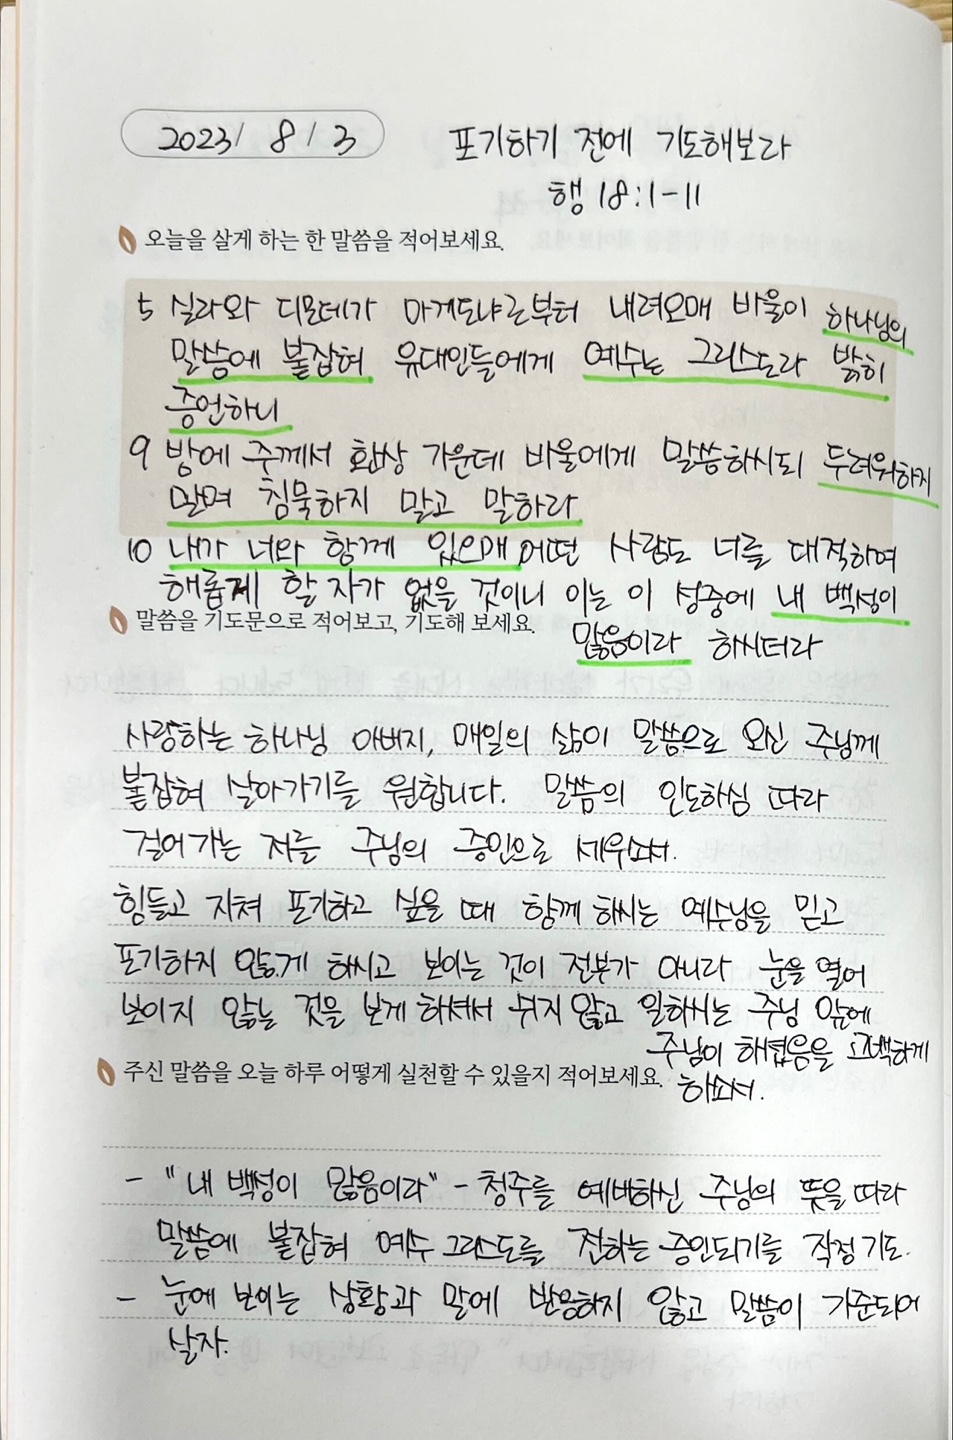 2023/ 8 / 3
포기하기 전에 기도해보라
행 18:1-11
오늘을 살게 하는 한 말씀을 적어보세요.
5 실라와 디모데가 마게도냐로부터 내려오매 바울이 하나님의
말씀에 붙잡혀 유대인들에게 예수는 그리스도라 밝히
증언하니
9 밤에 주께서 환상 가운데 바울에게 말씀하시되 두려워하지
말며 침묵하지 말고 말하라
10 내가 너와 함께 있으매 어떤 사람도 너를 대적하여
해롭게 할 자가 없을 것이니 이는 이 성중에 내 백성이
많음이라 하시더라
말씀을 기도문으로 적어보고, 기도해 보세요.
사랑하는 하나님 아버지, 매일의 삶이 말씀으로 오신 주님께
붙잡혀 살아가기를 원합니다. 말씀의 인도하심 따라
걸어가는 저를 주님의 증인으로 세우소서.
힘들고 지쳐 포기하고 싶을 때 함께 하시는 예수님을 믿고
포기하지 않게 하시고 보이는 것이 전부가 아니라 눈을 열어
보이지 않는 것을 보게 하셔서 쉬지 않고 일하시는 주님 앞에
주님이 해였음을 고백하게
하소서.
주신 말씀을 오늘 하루 어떻게 실천할 수 있을지 적어보세요.
- "내 백성이 많음이라" - 청주를 예비하신 주님의 뜻을 따라
말씀에 붙잡혀 예수 그리스도를 전하는 증인되기를 작정 기도.
- 눈에 보이는 상황과 말에 반응하지 않고 말씀이 기준되어
살자.